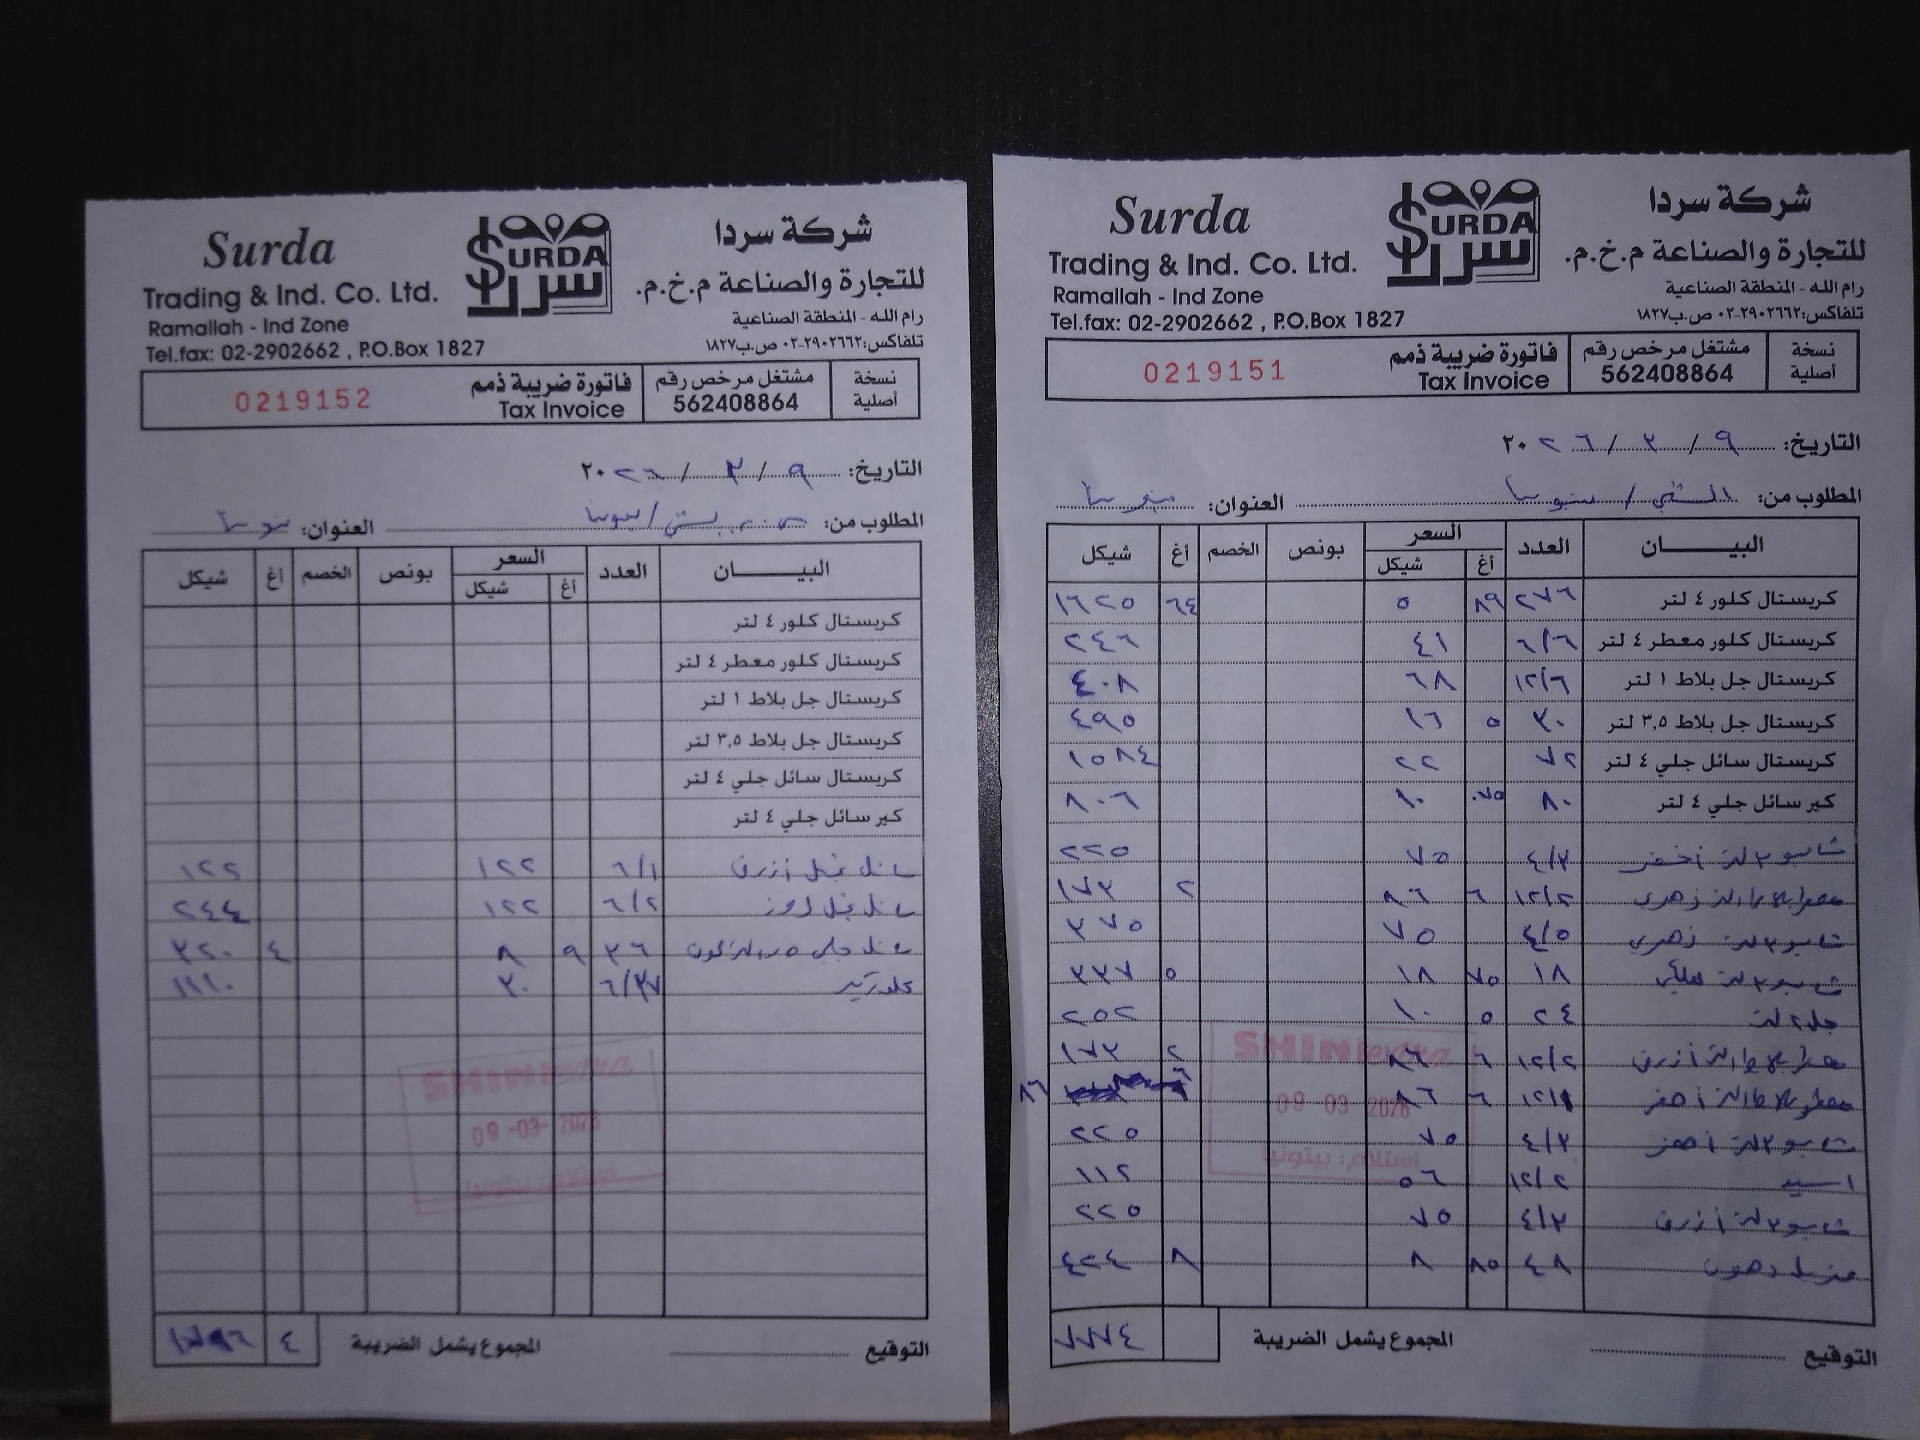 Surda
SURDA
سردا
شركة سردا
Trading & Ind. Co. Ltd.
للتجارة والصناعة م.خ.م.
Ramallah - Ind Zone
رام الله - المنطقة الصناعية
Tel.fax: 02-2902662 , P.O.Box 1827
تلفاكس: ٢٩٠٢٦٦٢-٠٢ ص.ب ١٨٢٧
نسخة أصلية
مشتغل مرخص رقم 562408864
فاتورة ضريبة ذمم
Tax Invoice
0219151
التاريخ: ٩ / ٣ / ٢٠٢٦
المطلوب من: العنوان:
البيـــان العدد السعر بونص الخصم أغ شيكل
أغ شيكل
كريستال كلور ٤ لتر ٢٧٦ ٨٩ ٥ ٦٤ ١٦٢٥
كريستال كلور معطر ٤ لتر ٦/٦ ٤١ ٢٤٦
كريستال جل بلاط ١ لتر ١٢/٦ ٦٨ ٤٠٨
كريستال جل بلاط ٣,٥ لتر ٣٠ ٥ ١٦ ٤٩٥
كريستال سائل جلي ٤ لتر ٧٢ ٢٢ ١٥٨٤
كير سائل جلي ٤ لتر ٨٠ ٧٥ ١٠ ٨٠٦
شامبو ٣ لتر أخضر ٤/٣ ٧٥ ٢٢٥
زهري ١٢/٢ ٦ ٨٦ ٢ ١٧٣
شامبو ٣ لتر زهري ٤/٥ ٧٥ ٣٧٥
شامبو ٣ لتر ١٨ ٧٥ ١٨ ٥ ٣٣٧
جل ٢ لتر ٢٤ ٥ ١٠ ٢٥٢
أزرق ١٢/٢ ٦ ٨٦ ٢ ١٧٣
أصفر ١٢/١ ٦ ٨٦ ٦ ٨٦
شامبو ٣ لتر أصفر ٤/٣ ٧٥ ٢٢٥
اسيد ١٢/٢ ٥٦ ١١٢
شامبو ٣ لتر أزرق ٤/٣ ٧٥ ٢٢٥
مزيل دهون ٤٨ ٨٥ ٨ ٨ ٤٢٤
SHINI
09 03 2026
استلام: بيتونيا
المجموع يشمل الضريبة ٧٧٧٤
التوقيع
Surda
SURDA
سردا
شركة سردا
Trading & Ind. Co. Ltd.
للتجارة والصناعة م.خ.م.
Ramallah - Ind Zone
رام الله - المنطقة الصناعية
Tel.fax: 02-2902662 , P.O.Box 1827
تلفاكس: ٢٩٠٢٦٦٢-٠٢ ص.ب ١٨٢٧
نسخة أصلية
مشتغل مرخص رقم 562408864
فاتورة ضريبة ذمم
Tax Invoice
0219152
التاريخ: ٩ / ٣ / ٢٠٢٦
المطلوب من: العنوان:
البيـــان العدد السعر بونص الخصم أغ شيكل
أغ شيكل
كريستال كلور ٤ لتر
كريستال كلور معطر ٤ لتر
كريستال جل بلاط ١ لتر
كريستال جل بلاط ٣,٥ لتر
كريستال سائل جلي ٤ لتر
كير سائل جلي ٤ لتر
سائل غسيل أزرق ٦/١ ١٢٢ ١٢٢
سائل غسيل روز ٦/٢ ١٢٢ ٢٤٤
سائل جلي ٣٦ ٩ ٨ ٤ ٣٢٠
كلوريد ٦/٣٧ ٣٠ ١١١٠
SHINI
09 -03- 2026
استلام: بيتونيا
المجموع يشمل الضريبة ٤ ١٧٩٦
التوقيع